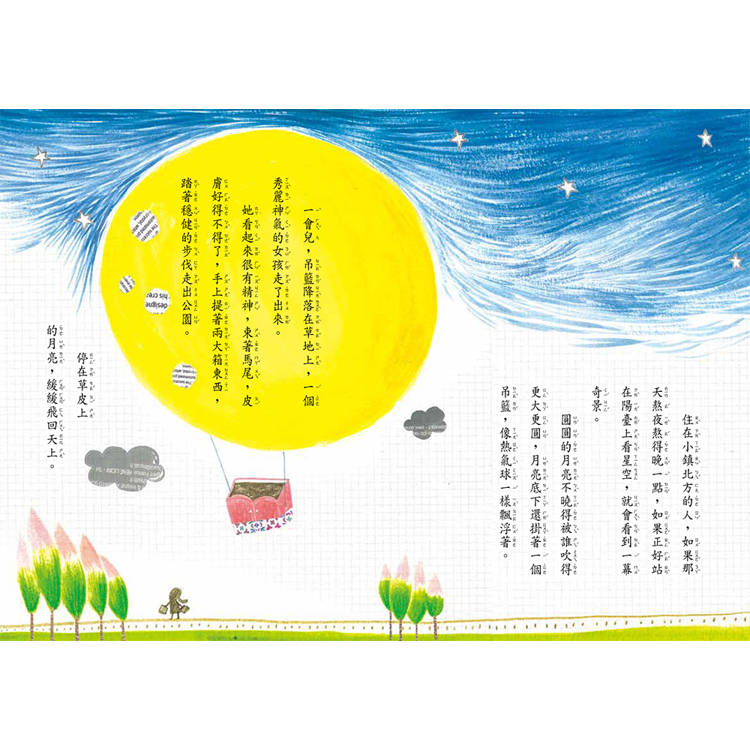 住在小鎮北方的人，如果那
天熬夜熬得晚一點，如果正好站
在陽臺上看星空，就會看到一幕
奇景。
圓圓的月亮不曉得被誰吹得
更大更圓，月亮底下還掛著一個
吊籃，像熱氣球一樣飄浮著。
一會兒，吊籃降落在草地上，一個
秀麗神氣的女孩走了出來。
她看起來很有精神，束著馬尾，皮
膚好得不得了，手上提著兩大箱東西，
踏著穩健的步伐走出公園。
停在草皮上
的月亮，緩緩飛回天上。